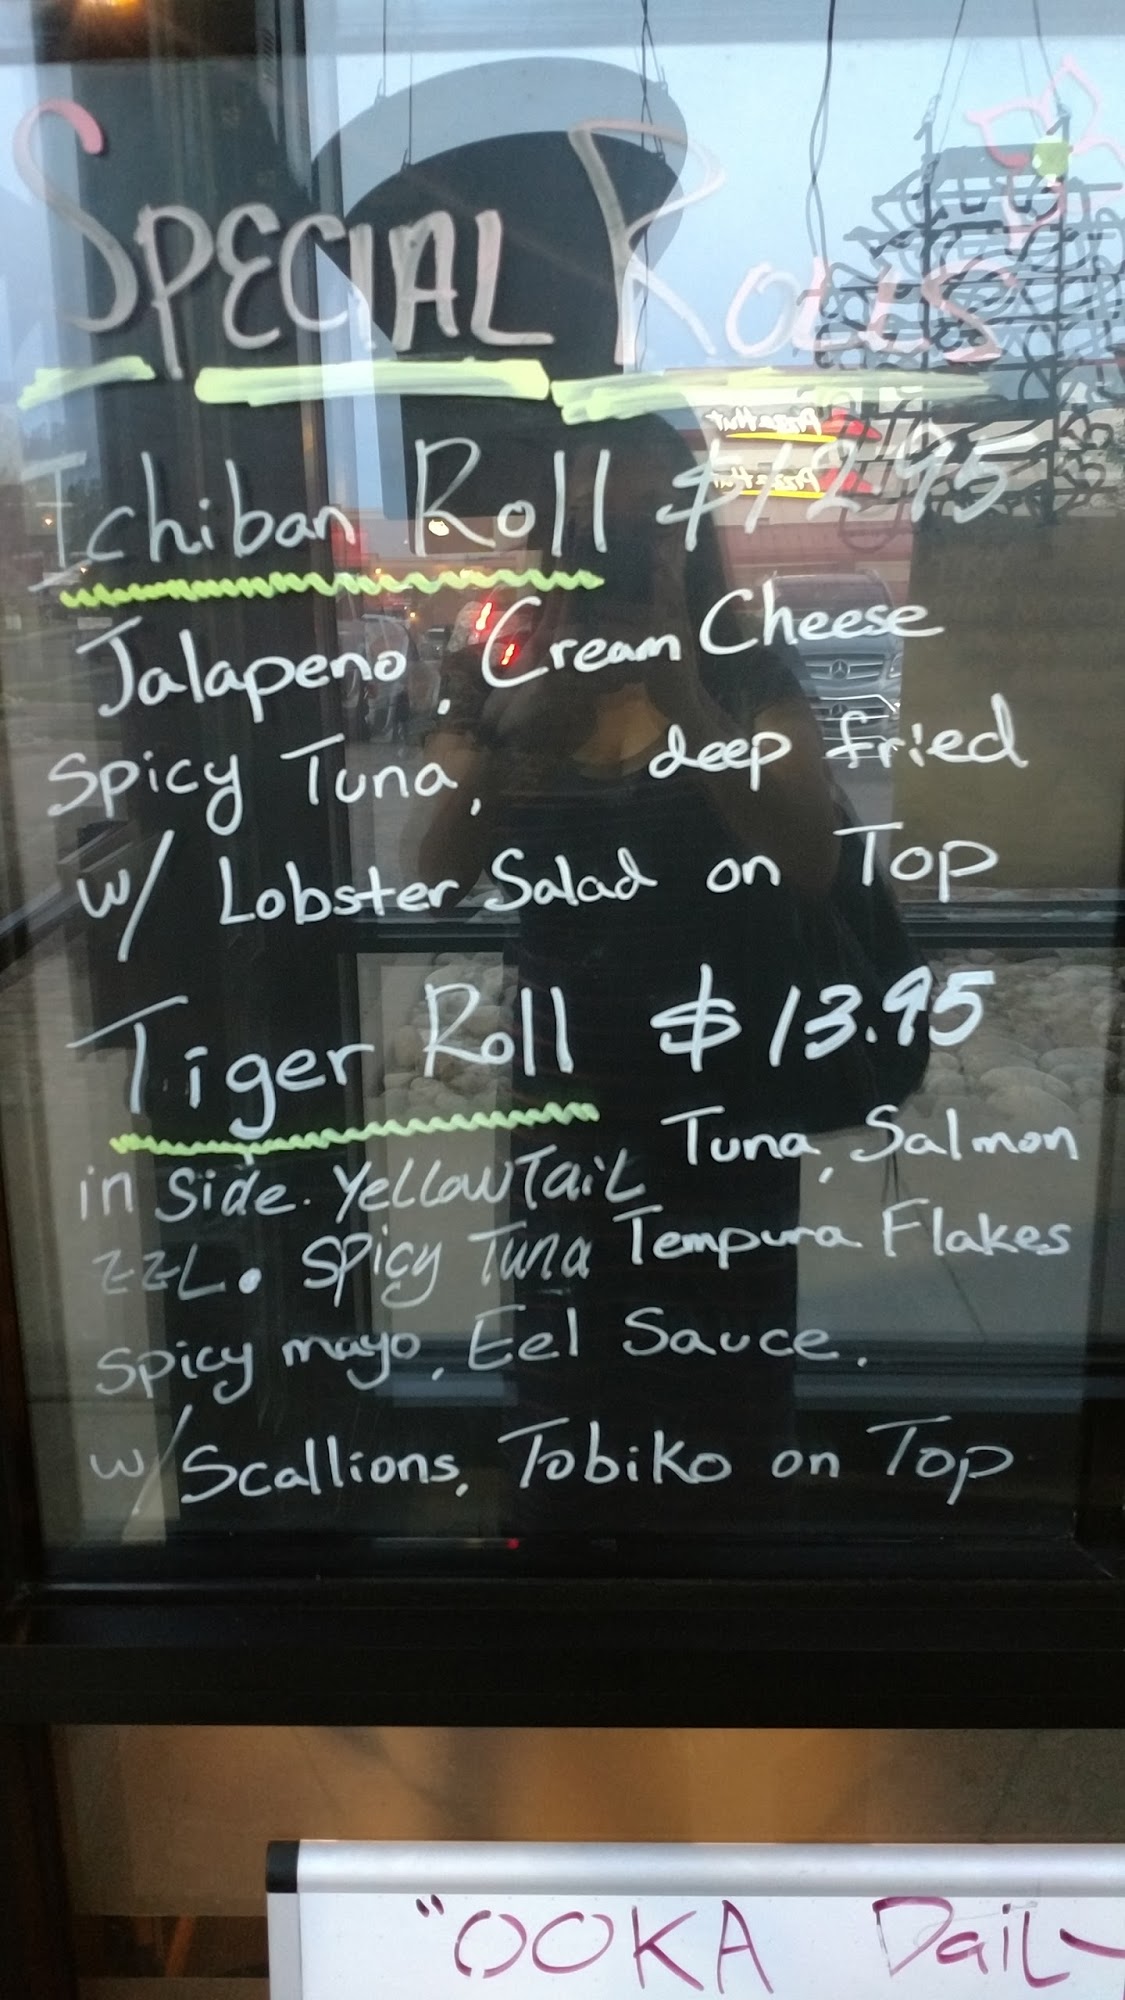 SPECIAL ROLLS
Ichiban Roll $12.95
Jalapeno, Cream Cheese
Spicy Tuna, deep fried
w/ Lobster Salad on Top
Tiger Roll $13.95
Tuna, Salmon
in Side. YellowTaiL
Spicy Tuna Tempura Flakes
Spicy mayo, Eel Sauce.
w/ Scallions, Tobiko on Top
"OOKA Dail